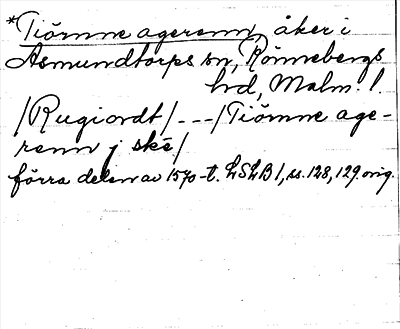 *Tiömne agerenn, åker i
Asmundtorps sn, Rönnebergs
hrd, Malm. l.
/Rugiordt/---/Tiömne age-
renn j ske/
förra delen av 1570-t. LSLB 1, ss. 128, 129. orig.